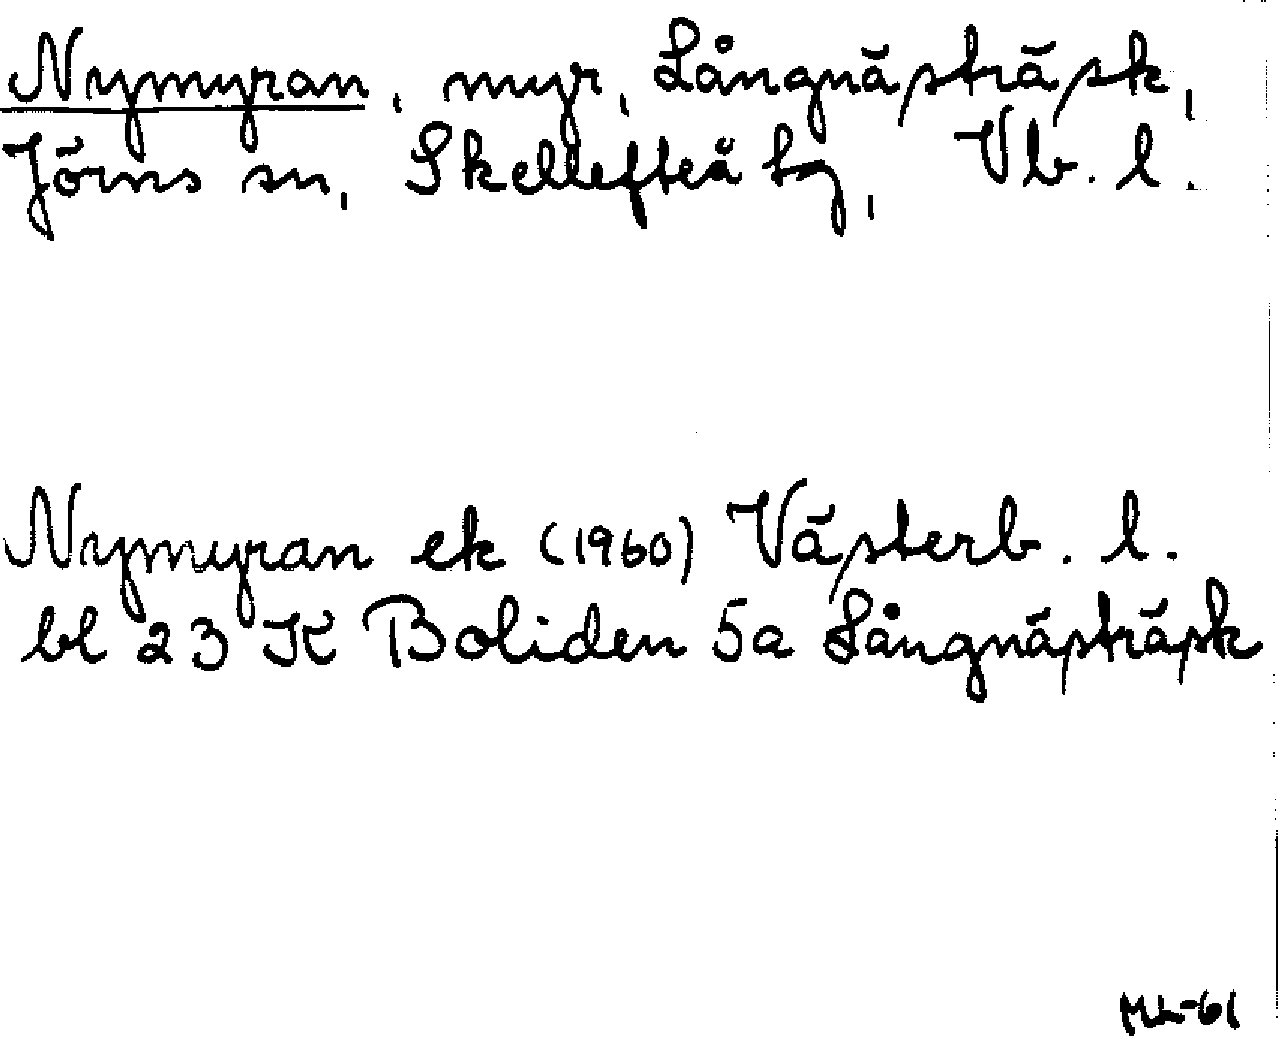 Nymyran, myr, Långnästräsk,
Jörns sn, Skellefteå tg, Vb. l.
Nymyran ek (1960) Västerb. l.
bl 23 K Boliden 5a Långnästräsk
ML-61